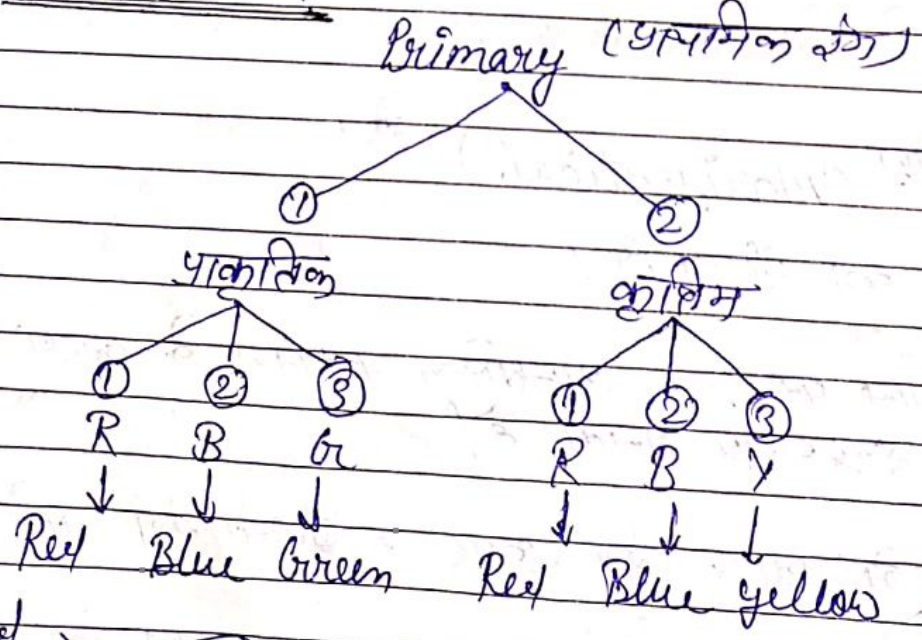 Primary (प्राथमिक रंग)
① ②
प्राकृतिक कृत्रिम
① ② ③ ① ② ③
R B G R B Y
Red Blue Green Red Blue yellow